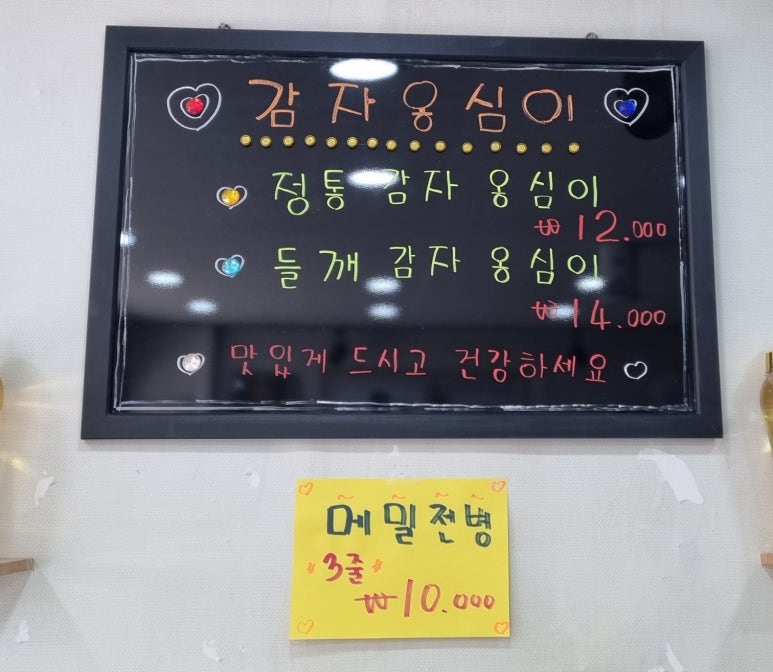 감자옹심이
정통 감자 옹심이
₩12.000
들깨 감자 옹심이
₩14.000
맛있게 드시고 건강하세요
메밀전병
3줄
₩10.000